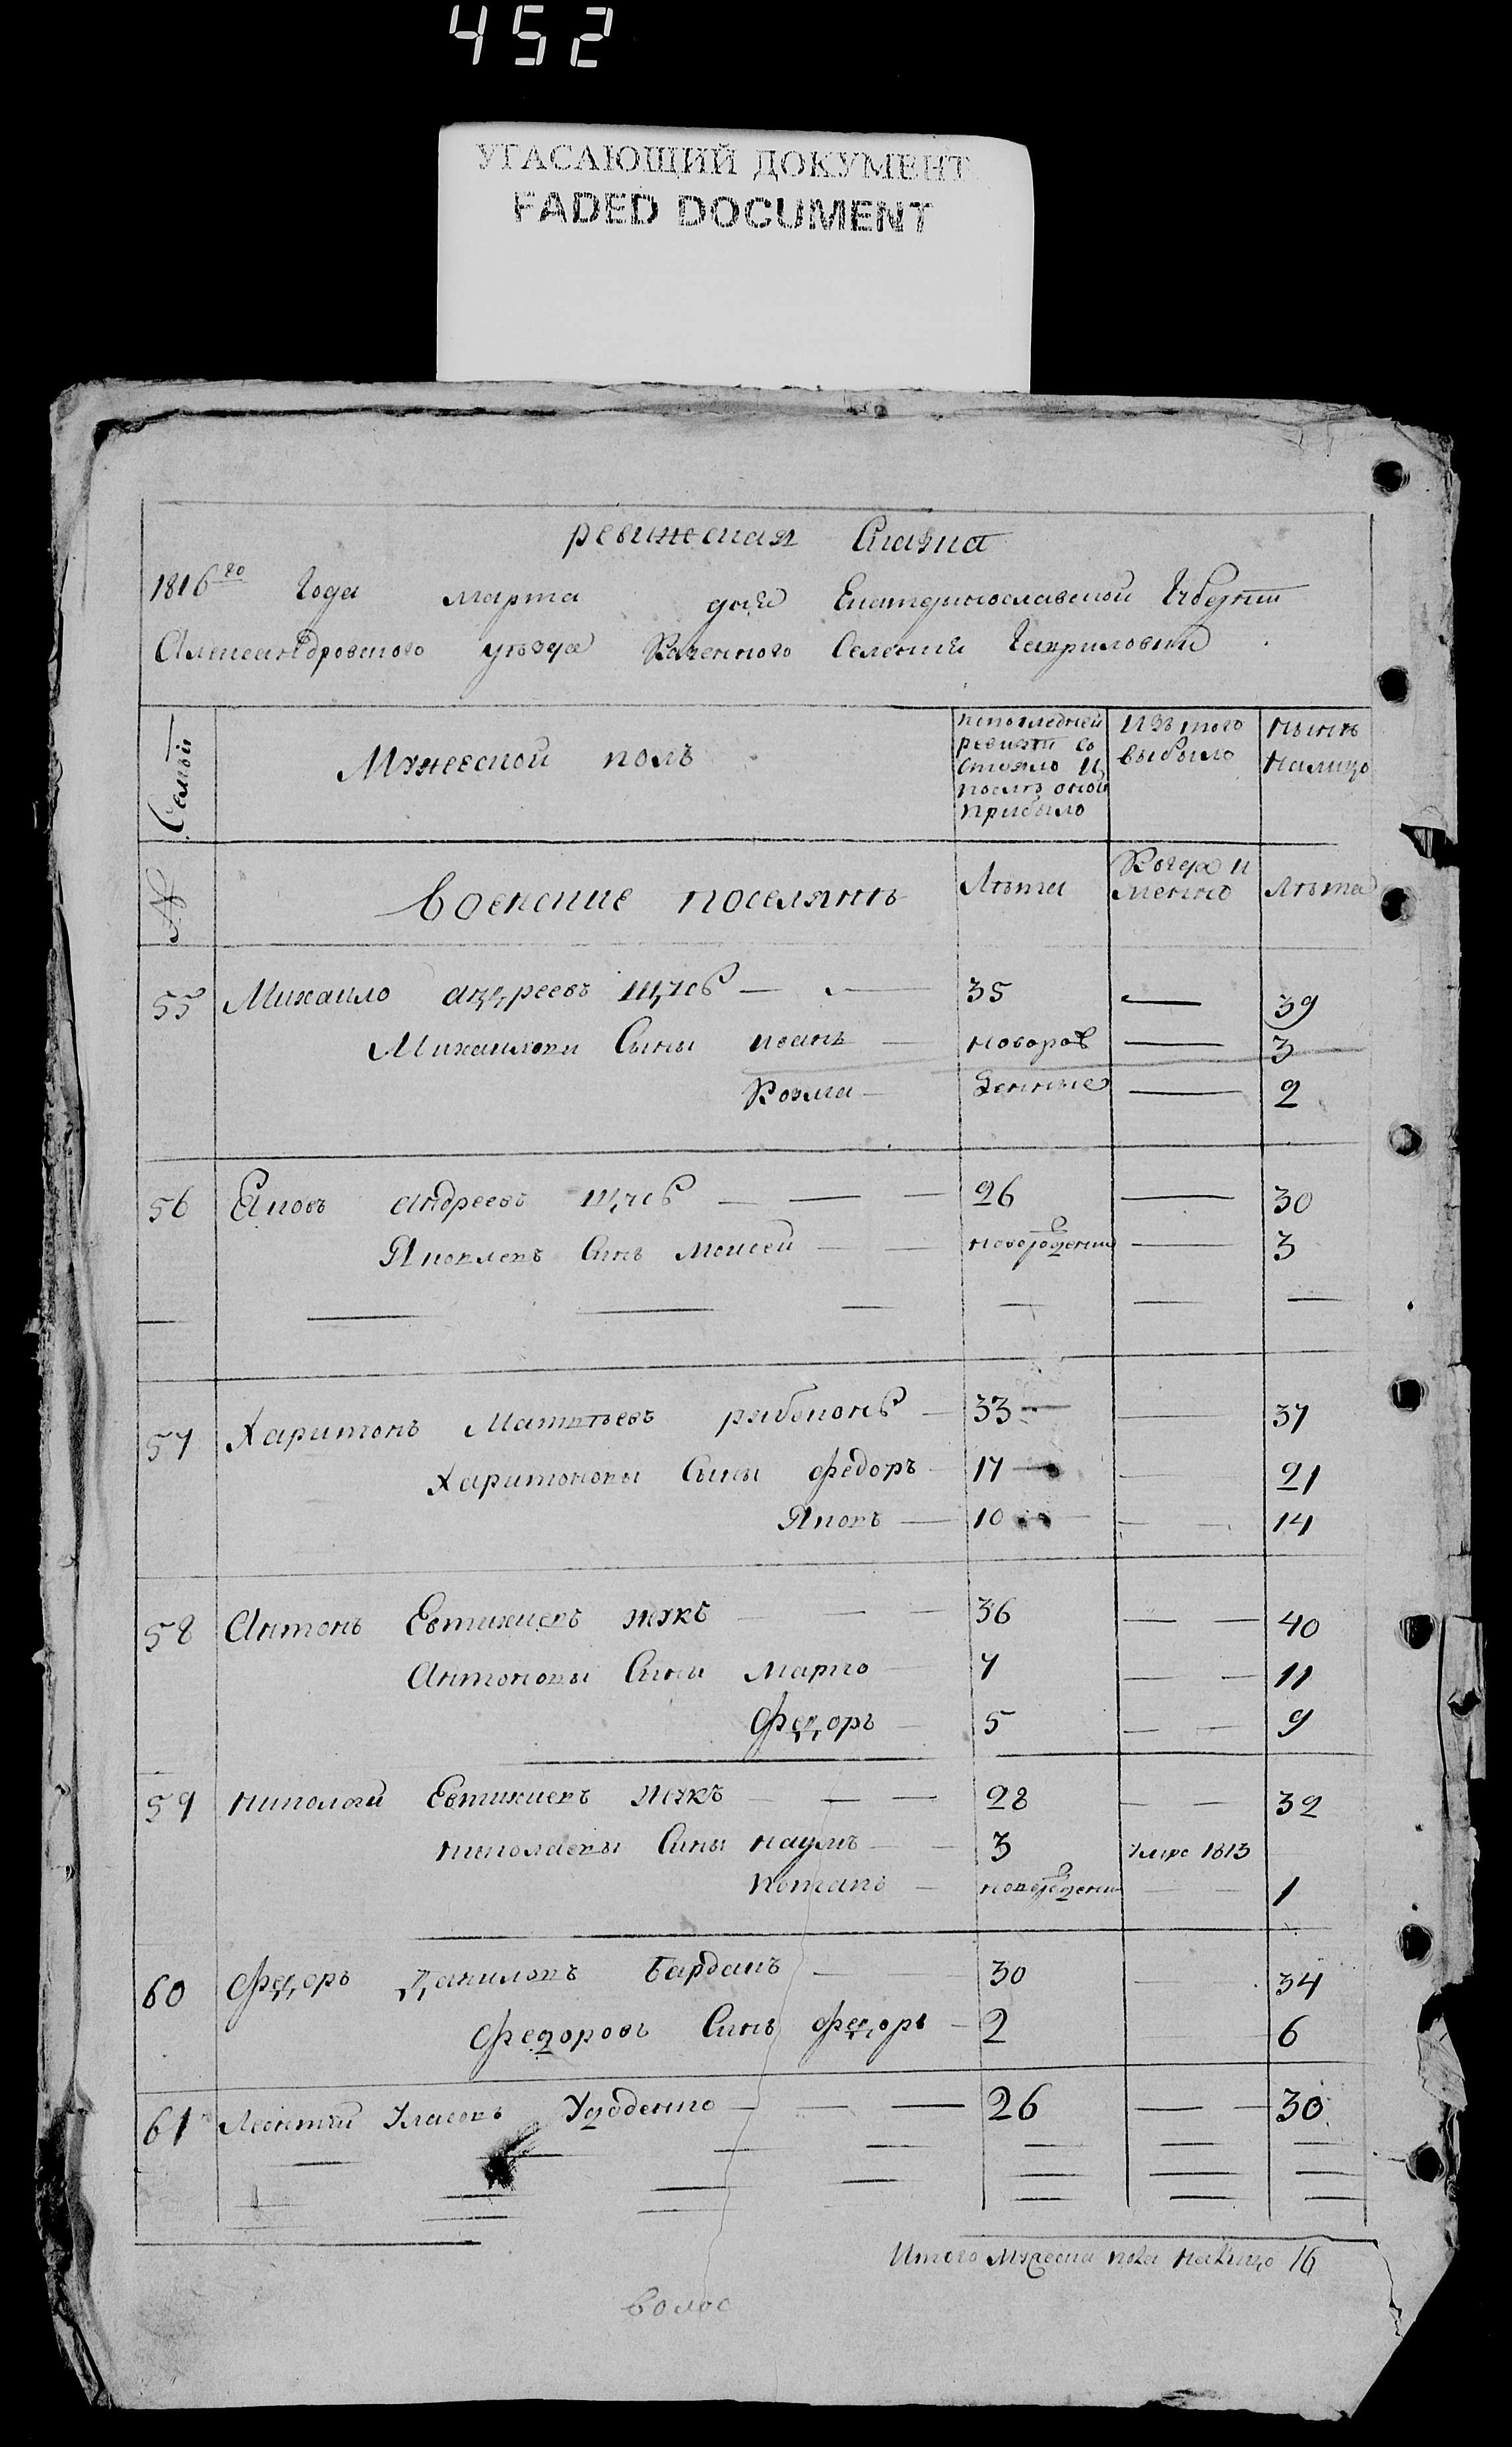 452
УГАСАЮЩИЙ ДОКУМЕНТ
FADED DOCUMENT
ревижская Сказка
1816го Года марта дня Екатеринославской Губернии
Александровского уезда Казенного Селения Гавриловки
Семьи Мужеской полъ
попоследней ревизіи состояло И после оной прибыло
Изъ того выбыло
ныне налицо
№ Военские поселяне Лета Когда Именно Лета
55 Михайло андреевъ — — 35 — 39
Михайловы Сыны иванъ — новорож — 3
Козма — денные — 2
56 Яковъ андреевъ — — — 26 — 30
Яковлевъ Сынъ Моисей — — новорожденный — 3
57 Харитонъ Матвеевъ рябоконь — 33 — — 37
Харитоновы Сыны федоръ — 17 — — 21
Яковъ — 10 — — — 14
58 Антонъ Евтихиевъ жукъ — — — 36 — — 40
Антоновы Сыны марко — 7 — — 11
Федоръ — 5 — — 9
59 николай Евтихиевъ жукъ — — — 28 — — 32
николаевы Сыны наумъ — — 3 умре 1813
потапъ — новорожденный — — 1
60 Федоръ Даниловъ Бардакъ — 30 — 34
Федоровъ Сынъ федоръ — 2 6
61 Леонтий Власовъ — — — 26 — — 30
Итого Мужеска пола налицо 16
волос